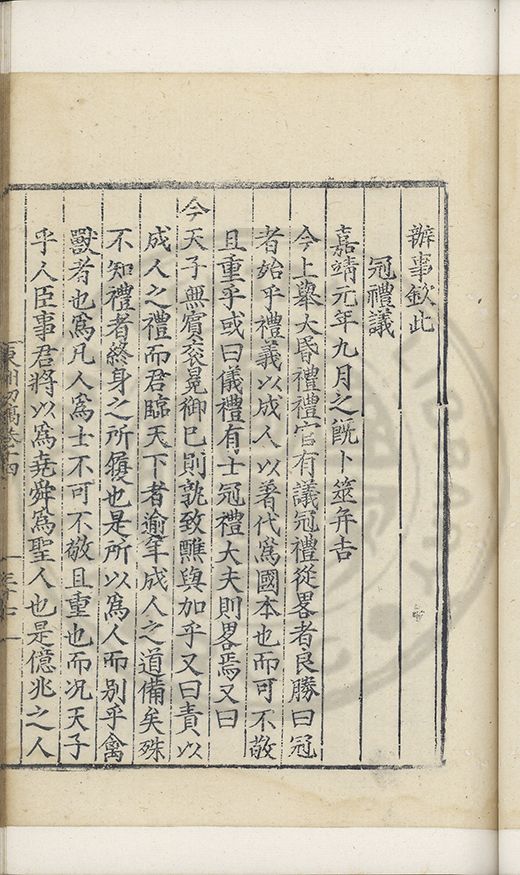 辦事欽此
冠禮議
嘉靖元年九月之旣卜筮弁吉
今上舉大昏禮禮官有議冠禮從畧者良勝曰冠
者始乎禮義以成人以著代爲國本也而可不敬
且重乎或曰儀禮有士冠禮大夫則畧焉又曰
今天子無賓袞冕御巳則孰致醮與加乎又曰責以
成人之禮而君臨天下者逾年成人之道備矣殊
不知禮者終身之所履也是所以爲人而别乎禽
獸者也爲凡人爲士不可不敬且重也而况天子
乎人臣事君將以爲堯舜爲聖人也是億兆之人
東洲初稿卷十四